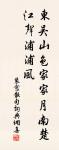 東吳山色家家月南楚
江聲浦浦風